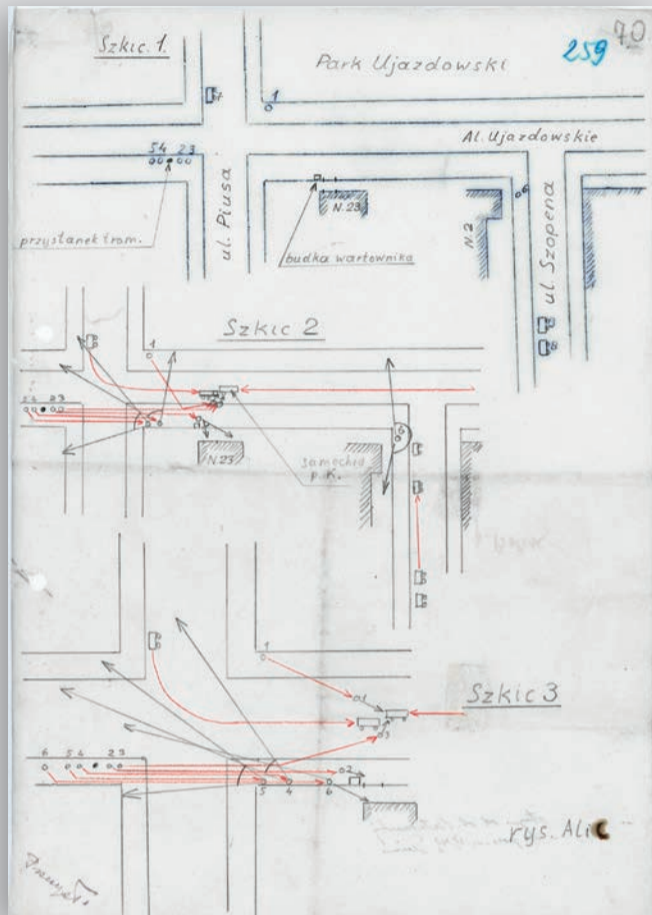 70
259
Szkic. 1.
Park Ujazdowski
1
Al. Ujazdowskie
54 23
6
N.23
N.2
przystanek tram.
ul. Piusa
budka wartownika
ul. Szopena
Szkic 2
1
54 23
6
N23
samochód
p.K.
1
Szkic 3
1
3
6 54 23
2
5 4 6
rys. Alic